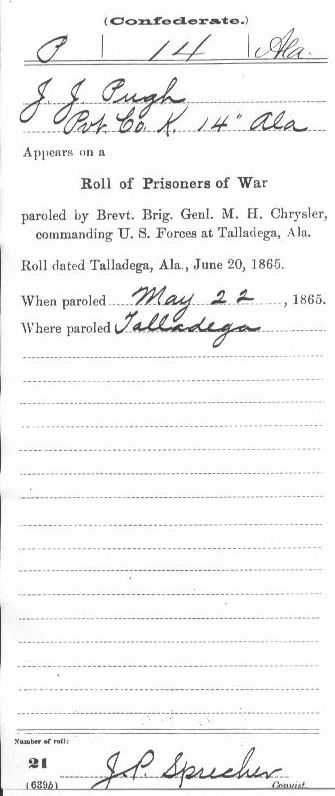 (Confederate.)
P | 14 | Ala.
J. J. Pugh
Pvt. Co. K. 14" Ala
Appears on a
Roll of Prisoners of War
paroled by Brevt. Brig. Genl. M. H. Chrysler,
commanding U. S. Forces at Talladega, Ala.
Roll dated Talladega, Ala., June 20, 1865.
When paroled May 22, 1865.
Where paroled Talladega
Number of roll:
21
J. P. Sprecher
(639b) Copyist.